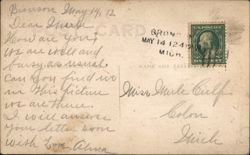 Bronson May 14, 12
Dear Merle
How are you
we are well and
busy as usual
Can you find us
in this picture
we are there.
I will answer
your letter soon
with Love Alma
CARD
BRONSON
MAY 14 12
MICH.
Miss Merle Culp
Colon
Mich